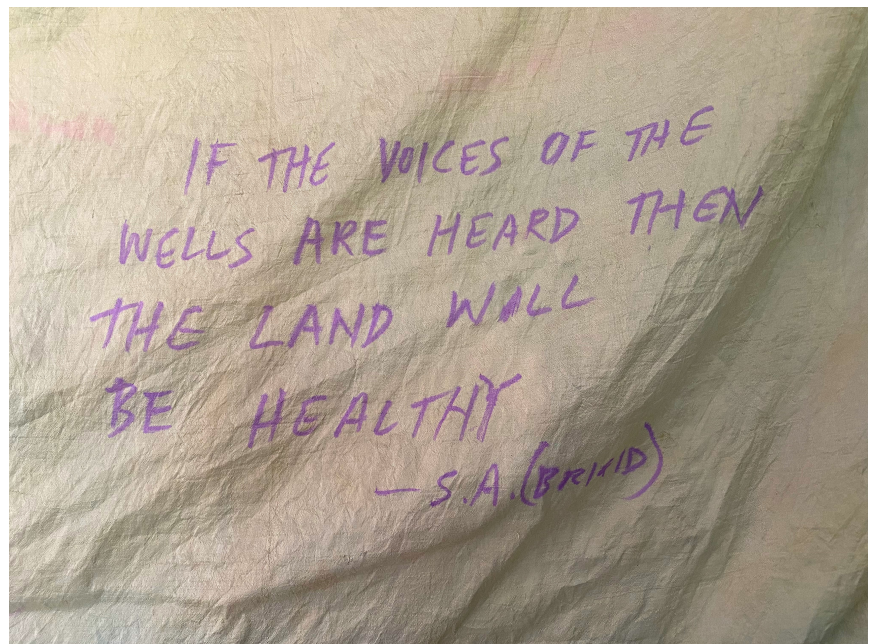 IF THE VOICES OF THE
WELLS ARE HEARD THEN
THE LAND WILL
BE HEALTHY
— S.A. (BRIGID)